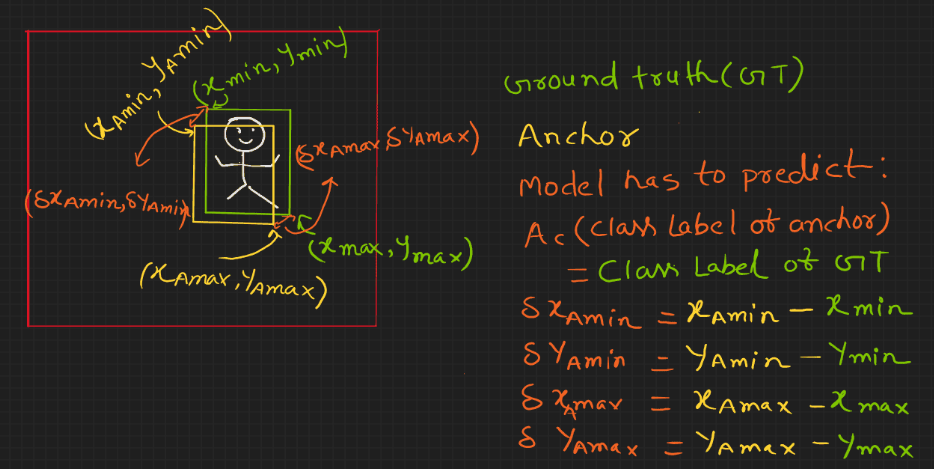 (xAmin, yAmin)
(xmin, ymin)
(δxAmax, δyAmax)
(δxAmin, δyAmin)
(xmax, ymax)
(xAmax, yAmax)
Ground truth (GT)
Anchor
Model has to predict:
Ac (Class Label of anchor)
= Class Label of GT
δxAmin = xAmin - xmin
δyAmin = yAmin - ymin
δxAmax = xAmax - xmax
δyAmax = yAmax - ymax